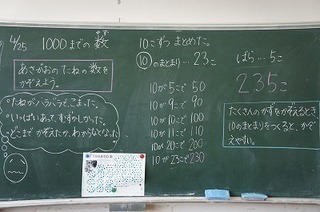 4/25 1000までの数
かず
あさがおのたねの数を
かぞえよう。
たねがバラバラで、こまった。
いっぱいあって、むずかしかった。
どこまでかぞえたか、わからなくなった。
10こずつまとめた。
10のまとまり…23こ
10が5こで50
10が9こで90
10が10こで100
10が11こで110
10が20こで200
10が23こで230
ばら…5こ
235こ
たくさんのかずをかぞえるとき、
10のまとまりをつくると、かぞ
えやすい。